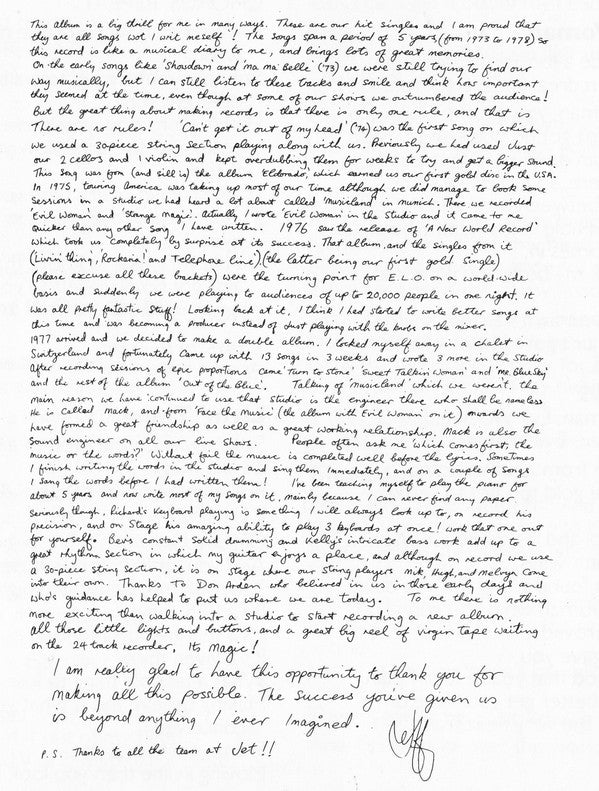 This album is a big thrill for me in many ways. These are our hit singles and I am proud that
they are all songs wot I writ meself! The songs span a period of 5 years, (from 1973 to 1978) so
this record is like a musical diary to me, and brings lots of great memories.
On the early songs like 'Showdown and 'ma ma Belle' ('73) we were still trying to find our
way musically, but I can still listen to these tracks and smile and think how important
they seemed at the time, even though at some of our shows we outnumbered the audience!
But the great thing about making records is that there is only one rule, and that is
There are no rules! 'Can't get it out of my head' ('74) was the first song on which
we used a 30 piece string section playing along with us. Previously we had used Just
our 2 cellos and 1 violin and kept overdubbing them for weeks to try and get a bigger sound.
This song was from (and still is) the album 'Eldorado', which earned us our first gold disc in the U.S.A.
In 1975, touring America was taking up most of our time although we did manage to book some
Sessions in a studio we had heard a lot about called 'Musicland' in munich. There we recorded
'Evil Woman' and 'Strange Magic'. Actually I wrote 'Evil Woman' in the Studio and it came to me
quicker than any other song I have written. 1976 saw the release of 'A New World Record'
which took us completely by surprise at its success. That album, and the singles from it
(Livin' thing', 'Rockaria! and Telephone line') (the latter being our first gold Single)
(please excuse all these brackets) were the turning point for E.L.O. on a world-wide
basis and suddenly we were playing to audiences of up to 20,000 people in one night. It
was all pretty fantastic stuff! Looking back at it, I think I had started to write better songs at
this time and was becoming a producer instead of Just playing with the knobs on the mixer.
1977 arrived and we decided to make a double album. I locked myself away in a chalet in
Switzerland and fortunately came up with 13 songs in 3 weeks and wrote 3 more in the Studio
After recording sessions of epic proportions came 'Turn to Stone' 'Sweet Talkin' Woman' and 'Mr. Blue Sky'
and the rest of the album 'Out of the Blue'. Talking of 'musicland' which we weren't, the
main reason we have continued to use that Studio is the engineer there who shall be nameless
He is called Mack, and from 'Face the Music' (the album with Evil Woman on it) onwards we
have formed a great friendship as well as a great working relationship, Mack is also the
Sound engineer on all our live Shows. People often ask me 'which comes first, the
music or the words?' Without fail the music is completed well before the lyrics, Sometimes
I finish writing the words in the studio and sing them immediately, and on a couple of songs
I sang the words before I had written them! I've been teaching myself to play the piano for
about 5 years and now write most of my songs on it, mainly because I can never find any paper.
Seriously though, Richard's keyboard playing is something I will always look up to, on record his
precision, and on Stage his amazing ability to play 3 keyboards at once! work that one out
for yourself. Bev's constant solid drumming and Kelly's intricate bass work add up to a
great rhythm section in which my guitar enjoys a place, and although on record we use
a 30-piece string section, it is on stage where our String players Mik, Hugh, and Melvyn come
into their own. Thanks To Don Arden who believed in us in those early days and
who's guidance has helped to put us where we are today. To me there is nothing
more exciting than walking into a studio to start recording a new album.
all those little lights and buttons, and a great big reel of virgin tape waiting
on the 24 track recorder, Its magic!
I am really glad to have this opportunity to thank you for
making all this possible. The Success you've given us
is beyond anything I ever Imagined.
Jeff
P.S. Thanks to all the team at Jet!!